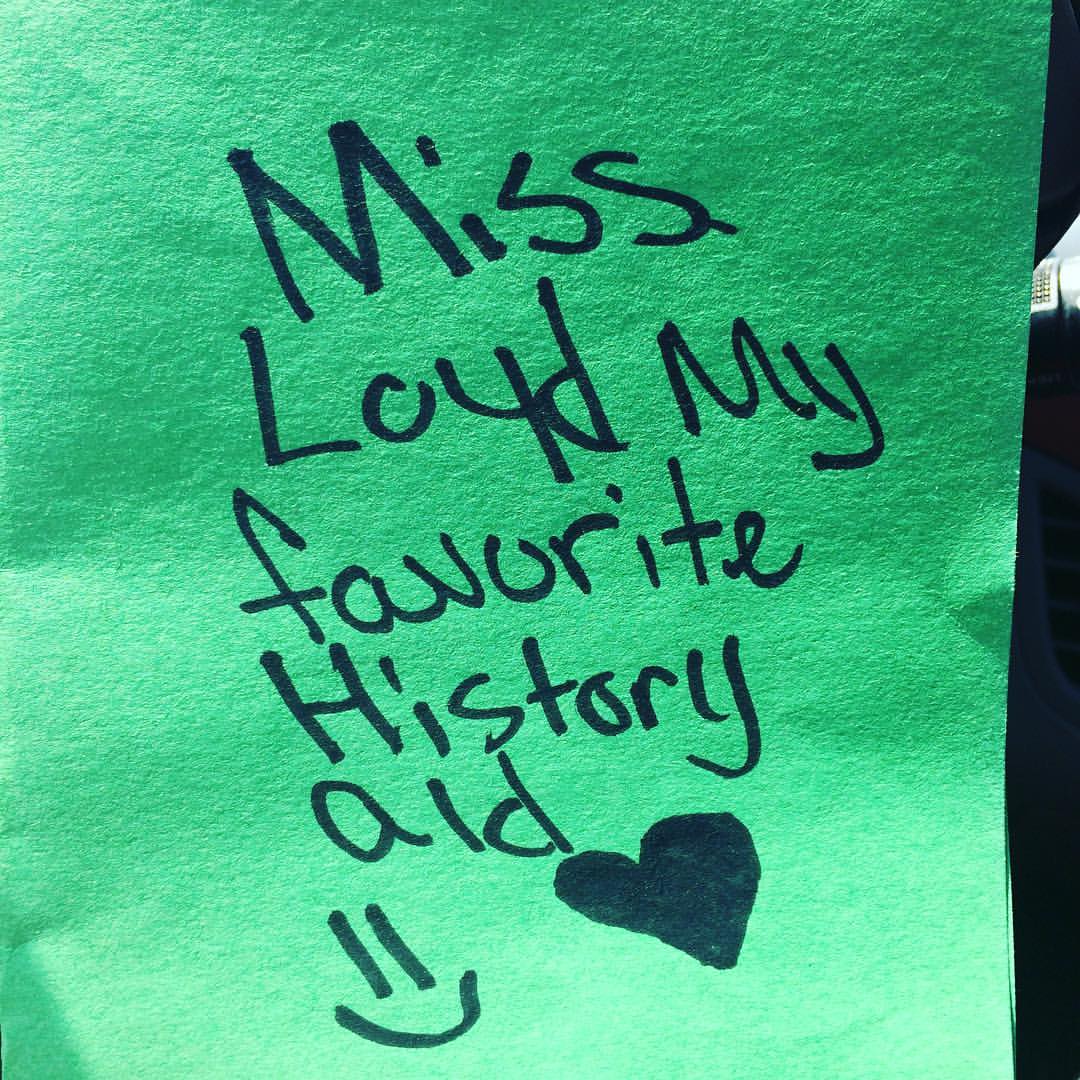 Miss
Loyd My
favorite
History
aid